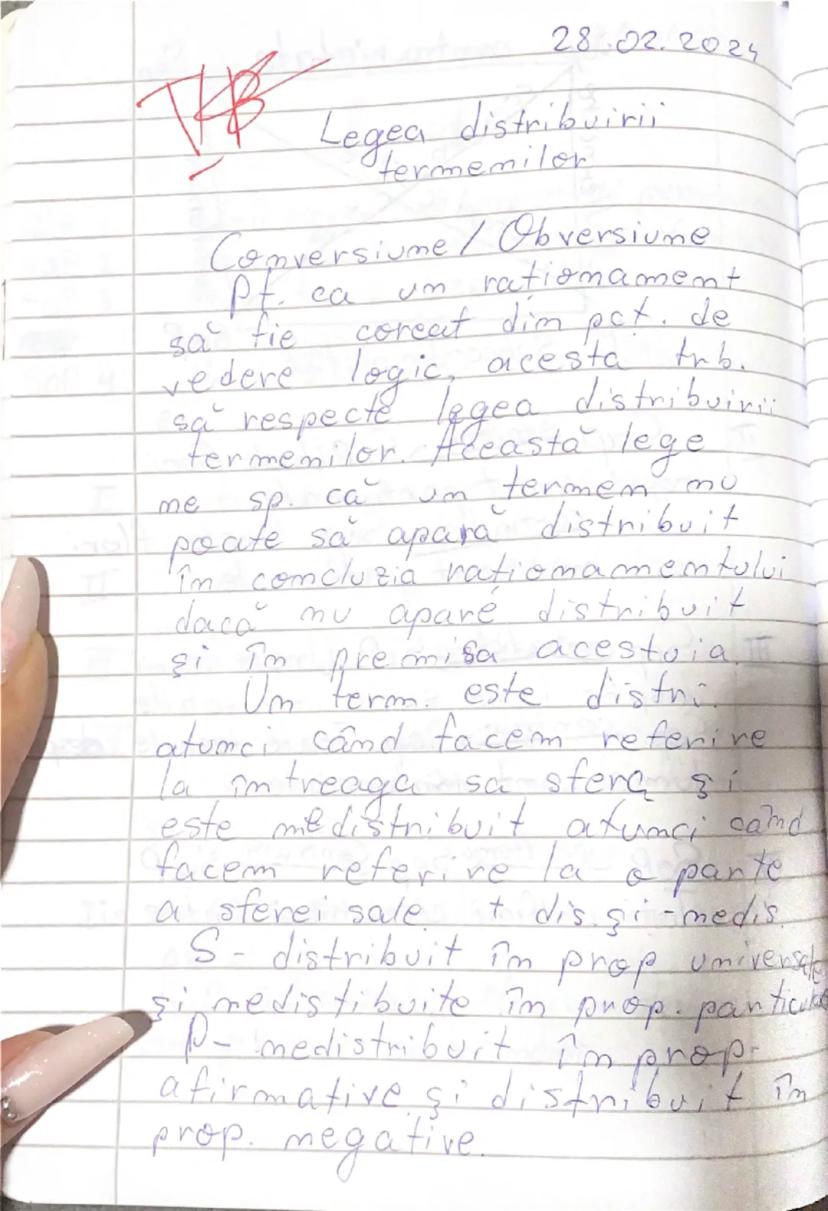 28.02.2024
Legea distribuirii
termenilor
Conversiune / Obversiune
Pt. ca un rationament
să fie coreat din pct. de
vedere logic, acesta trb.
să respecte legea distribuirii
termenilor. Această lege
ne sp. că un termen nu
poate să apară distribuit
în concluzia rationamentului
dacă nu apare distribuit
și în premisa acestuia.
Un term. este distri.
atunci când facem referire
la întreaga sa sferă și
este nedistribuit atunci când
facem referire la o parte
a sferei sale + dis. și - nedis.
S - distribuit în prop universale
și nedistibuite în prop.
P - nedistribuit în prop.
afirmative și distribuit în
prop. negative.